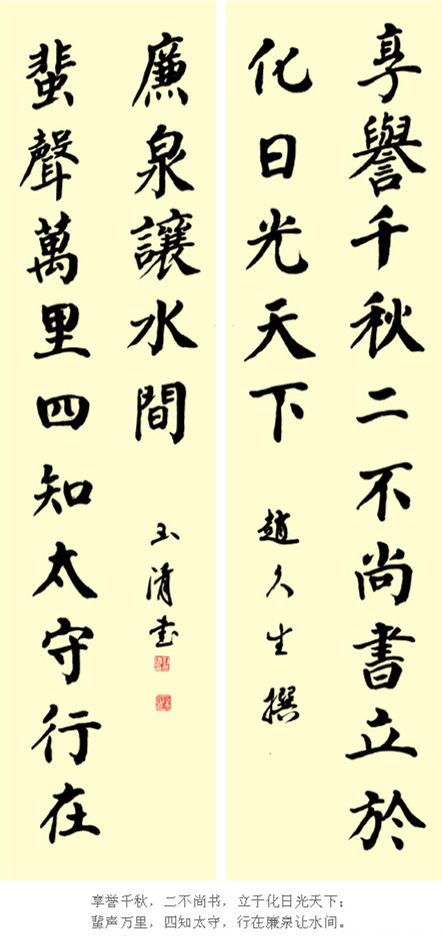 享譽千秋二不尚書立於
化日光天下
趙久生撰
蜚聲萬里四知太守行在
廉泉讓水間
玉清書
享誉千秋，二不尚书，立于化日光天下；
蜚声万里，四知太守，行在廉泉让水间。